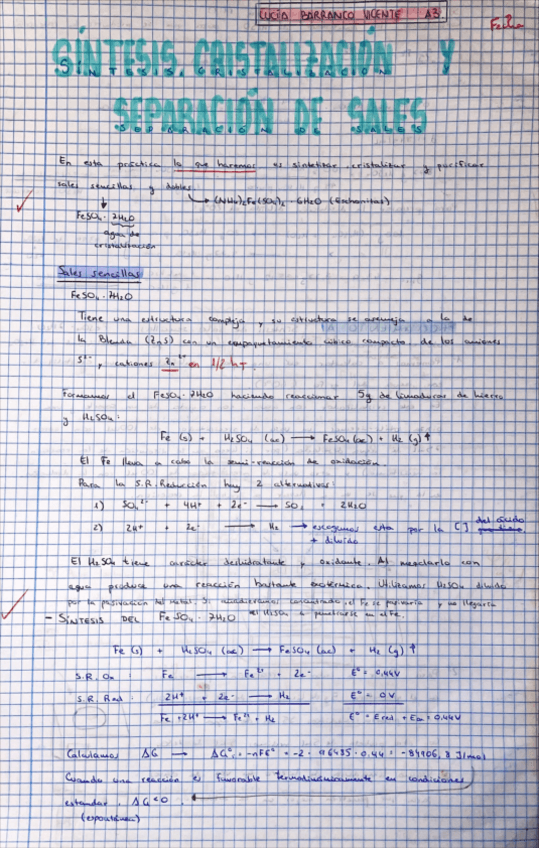 LUCÍA BARRANCO VICENTE A3.
Fecha?
SÍNTESIS, CRISTALIZACIÓN Y
SEPARACIÓN DE SALES
En esta práctica lo que haremos es sintetizar, cristalizar y purificar
sales sencillas y dobles.
(NH₄)₂Fe(SO₄)₂ · 6H₂O
FeSO₄ · 7H₂O
agua de
cristalización
Sales sencillas
FeSO₄ · 7H₂O
Tiene una estructura compleja y su estructura se asemeja a la de
la Blenda (ZnS) con un empaquetamiento cúbico compacto de los aniones
S²⁻, y cationes Zn²⁺ en 1/2 hT.
Formamos el FeSO₄ · 7H₂O haciendo reaccionar 5g de limaduras de hierro
y H₂SO₄:
Fe (s) + H₂SO₄ (ac) → FeSO₄(ac) + H₂ (g)↑
El Fe lleva a cabo la semi-reacción de oxidación.
Para la S.R. Reducción hay 2 alternativas:
1) SO₄²⁻ + 4H⁺ + 2e⁻ → SO₂ + 2H₂O
2) 2H⁺ + 2e⁻ → H₂ → escogemos esta por la [] del ácido
+ diluido
El H₂SO₄ tiene carácter deshidratante y oxidante. Al mezclarlo con
agua produce una reacción bastante exotérmica. Utilizamos H₂SO₄ diluido
por la pasivación del metal. Si añadiéramos concentrado, el Fe se pasivaría y no llegaría
el H₂SO₄ a penetrarse en el Fe.
- SÍNTESIS DEL FeSO₄ · 7H₂O
Fe (s) + H₂SO₄ (ac) → FeSO₄ (ac) + H₂ (g) ↑
S.R. Ox: Fe → Fe²⁺ + 2e⁻ E° = 0,44V
S.R. Red: 2H⁺ + 2e⁻ → H₂ E° = 0V
Fe + 2H⁺ → Fe²⁺ + H₂ E° = Ered + Eox = 0,44V
Calculamos ΔG → ΔG° = -nFE° = -2 · 96485 · 0,44 = -84906,8 J/mol
Cuando una reacción es favorable termodinámicamente en condiciones
estándar, ΔG<0.
(espontánea)